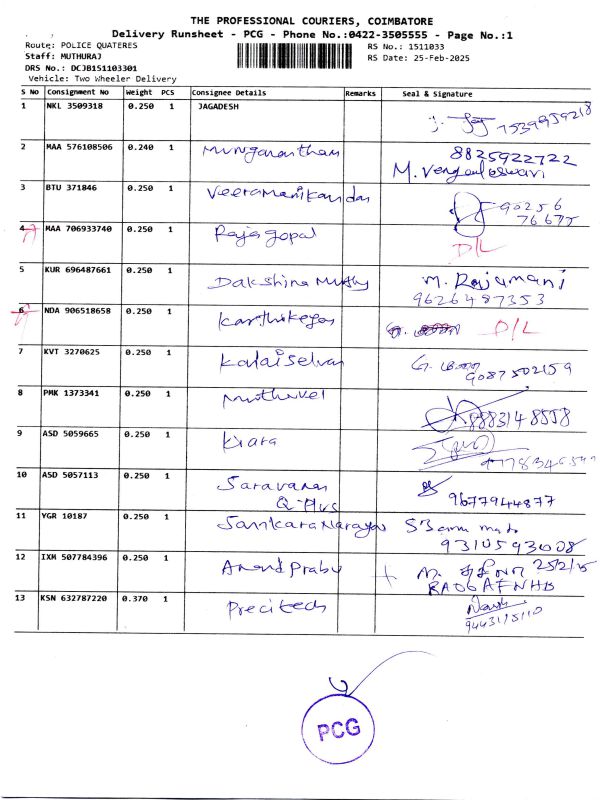 THE PROFESSIONAL COURIERS, COIMBATORE
Delivery Runsheet - PCG - Phone No.:0422-3505555 - Page No.:1
Route: POLICE QUATERES RS No.: 1511033
Staff: MUTHURAJ RS Date: 25-Feb-2025
DRS No.: DCJB151103301
Vehicle: Two Wheeler Delivery
S No Consignment No Weight PCS Consignee Details Remarks Seal & Signature
1 NKL 3509318 0.250 1 JAGADESH 7539959218
2 MAA 576108506 0.240 1 Murganantham 8825922722
M. Vengaleswari
3 BTU 371846 0.250 1 Veeramanikandan 90256
76675
4 MAA 706933740 0.250 1 Rajagopal D/L
5 KUR 696487661 0.250 1 Dakshina Muthy M. Rajamani
9626487353
6 NDA 906518658 0.250 1 Karthikeyan D/L
7 KVT 3270625 0.250 1 Kalaiselvan 9087502159
8 PMK 1373341 0.250 1 Muthuvel 8883148558
9 ASD 5059665 0.250 1 Kiara
10 ASD 5057113 0.250 1 Saravanan
Q-Plus 9677944877
11 YGR 10187 0.250 1 Sankaranarayan
9310593008
12 IXM 507784396 0.250 1 Anand Prabu 25/2/25
BAOGAFNHB
13 KSN 632787220 0.370 1 Precitech
9443115110
PCG